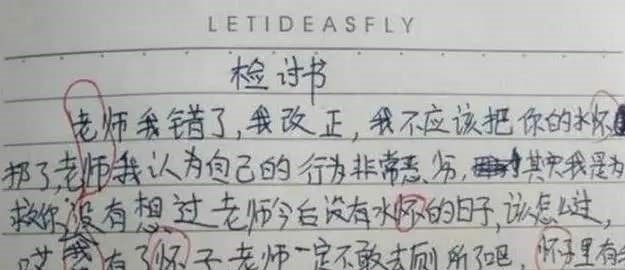 LETIDEASFLY
检讨书
老师我错了,我改正,我不应该把你的水怀
扔了,老师我认为自己的行为非常恶劣,其实我是为
救你,没有想过老师今后没有水怀的日子,该怎么过,
哎 有了怀子老师一定不敢去厕所了吧,怀子里有